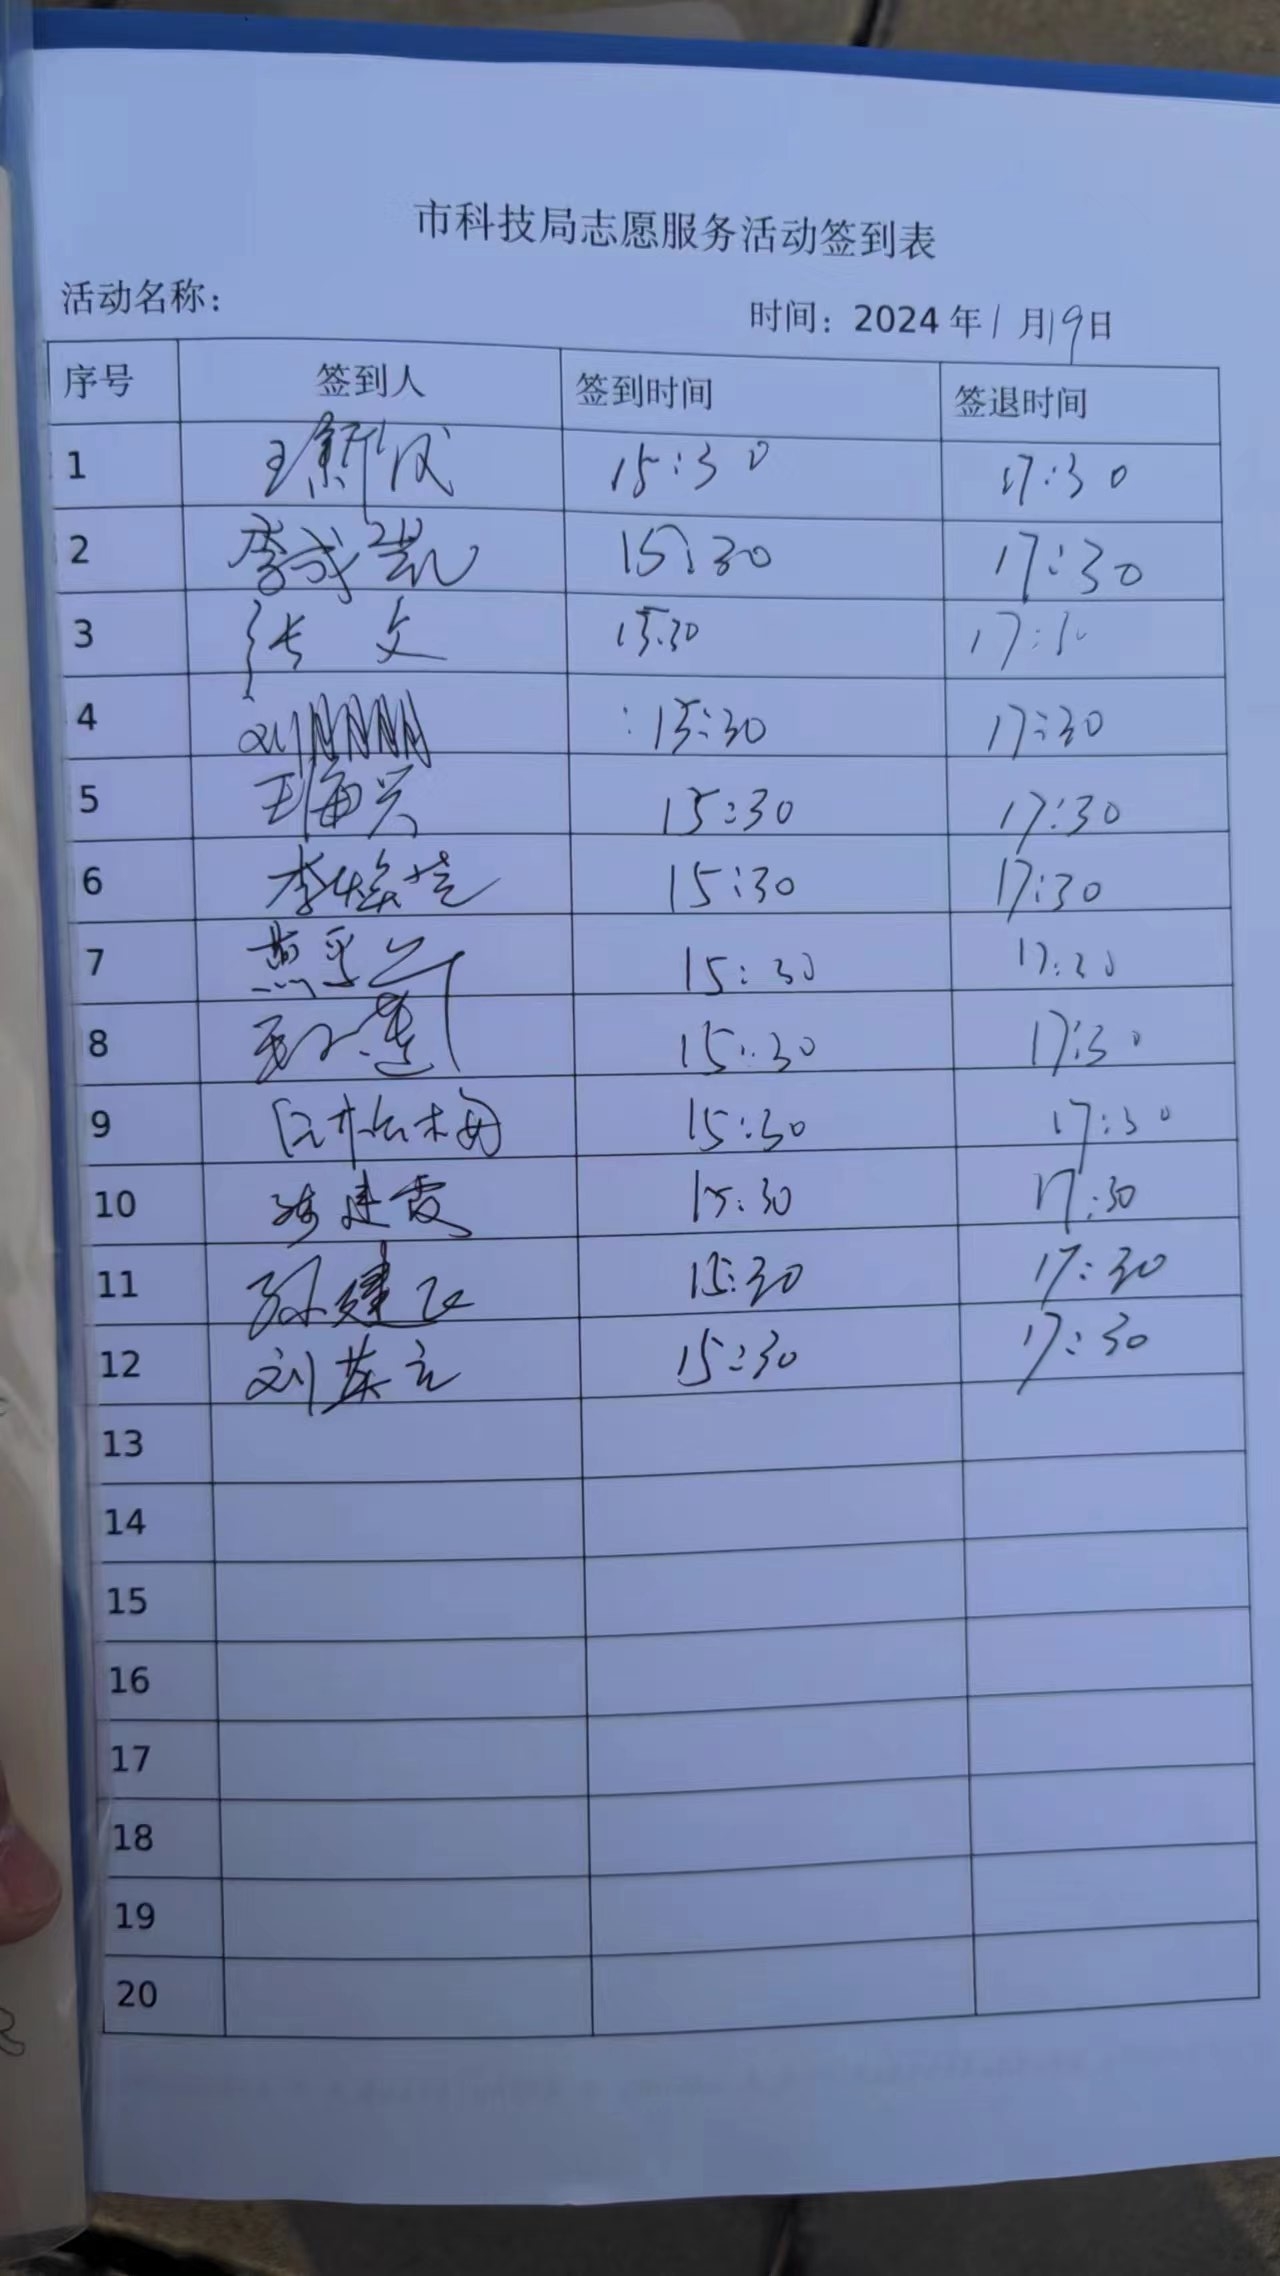 市科技局志愿服务活动签到表
活动名称: 时间: 2024年1月19日
序号 签到人 签到时间 签退时间
1 王新 15:30 17:30
2 李成凯 15:30 17:30
3 张文 15:30 17:30
4 刘 15:30 17:30
5 王海兴 15:30 17:30
6 李 15:30 17:30
7 燕 15:30 17:30
8 15:30 17:30
9 15:30 17:30
10 建霞 15:30 17:30
11 孙建飞 15:30 17:30
12 刘英 15:30 17:30
13
14
15
16
17
18
19
20